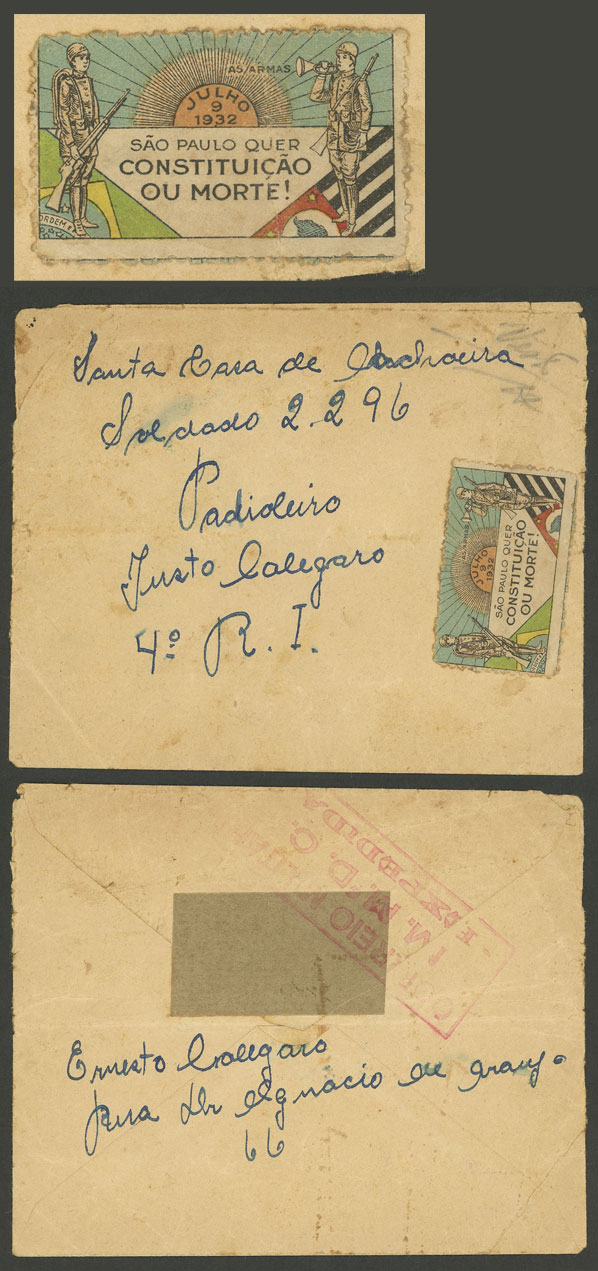 AS ARMAS
JULHO
9
1932
SÃO PAULO QUER
CONSTITUIÇÃO
OU MORTE!
ORDEM
Santa Casa de Cachoeira
Soldado 2.296
Padioleiro
Justo Calegaro
4º R. I.
AS ARMAS
JULHO
9
1932
SÃO PAULO QUER
CONSTITUIÇÃO
OU MORTE!
M. M. D. C.
EXPEDIDA
Ernesto Calegaro
Rua Dr Ignacio de Arauj.
66